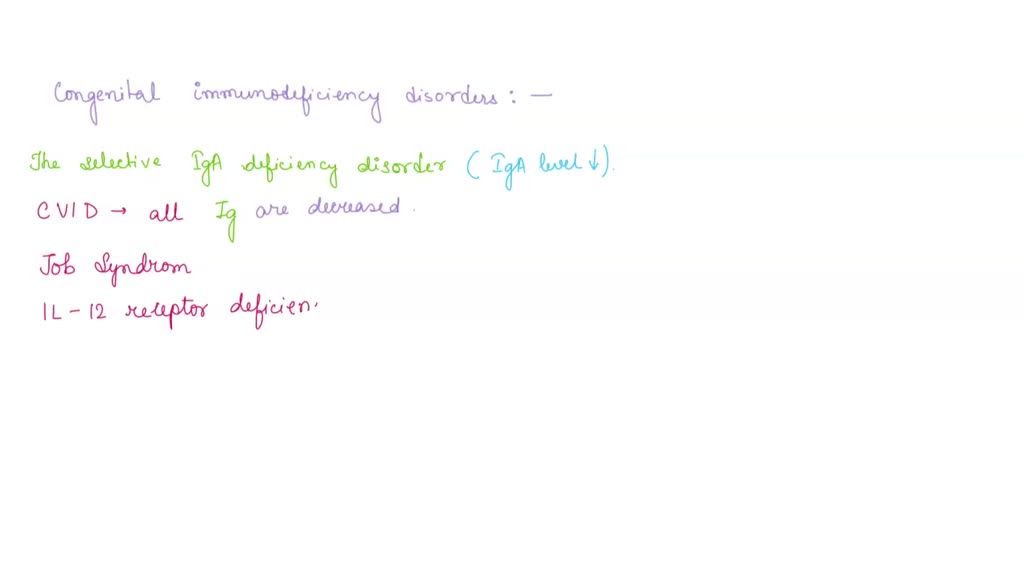 Congenital immunodeficiency disorders : —
The selective IgA deficiency disorder ( IgA level ↓).
CVID → all Ig are decreased .
Job Syndrom
IL-12 receptor deficien